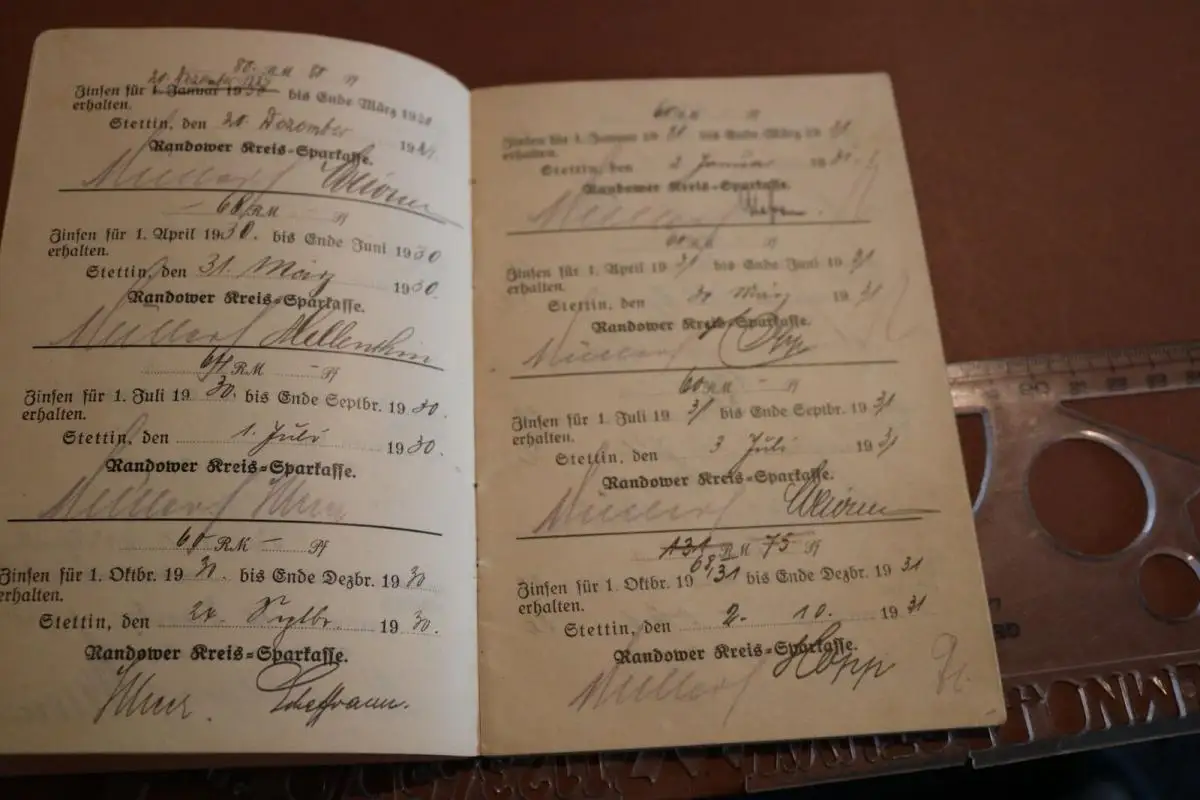 80. RM 80 Pf
20. Dezember 1929
Zinsen für 1. Januar 1930 bis Ende März 1930
erhalten.
Stettin, den 20 Dezember 19
Randower Kreis-Sparkasse.
68 RM – Pf
Zinsen für 1. April 1930. bis Ende Juni 1930
erhalten.
Stettin, den 31. März 1930.
Randower Kreis-Sparkasse.
Hellenthin
RM – Pf
Zinsen für 1. Juli 1930. bis Ende Septbr. 1930.
erhalten.
Stettin, den 1. Juli 1930.
Randower Kreis-Sparkasse.
RM – Pf
Zinsen für 1. Oktbr. 1930. bis Ende Dezbr. 1930
erhalten.
Stettin, den 24. Septbr. 1930.
Randower Kreis-Sparkasse.
60 RM Pf
Zinsen für 1. Januar 1931 bis Ende März 1931
erhalten.
Stettin, den 2 Januar 1931.
Randower Kreis-Sparkasse.
60 RM Pf
Zinsen für 1. April 1931 bis Ende Juni 1931
erhalten.
Stettin, den 31 März 1931
Randower Kreis-Sparkasse.
60 RM – Pf
Zinsen für 1. Juli 1931 bis Ende Septbr. 1931
erhalten.
Stettin, den 3 Juli 1931
Randower Kreis-Sparkasse.
131 RM 75 Pf
68,31
Zinsen für 1. Oktbr. 19 bis Ende Dezbr. 1931
erhalten.
Stettin, den 2. 10. 1931
Randower Kreis-Sparkasse.
Hopp